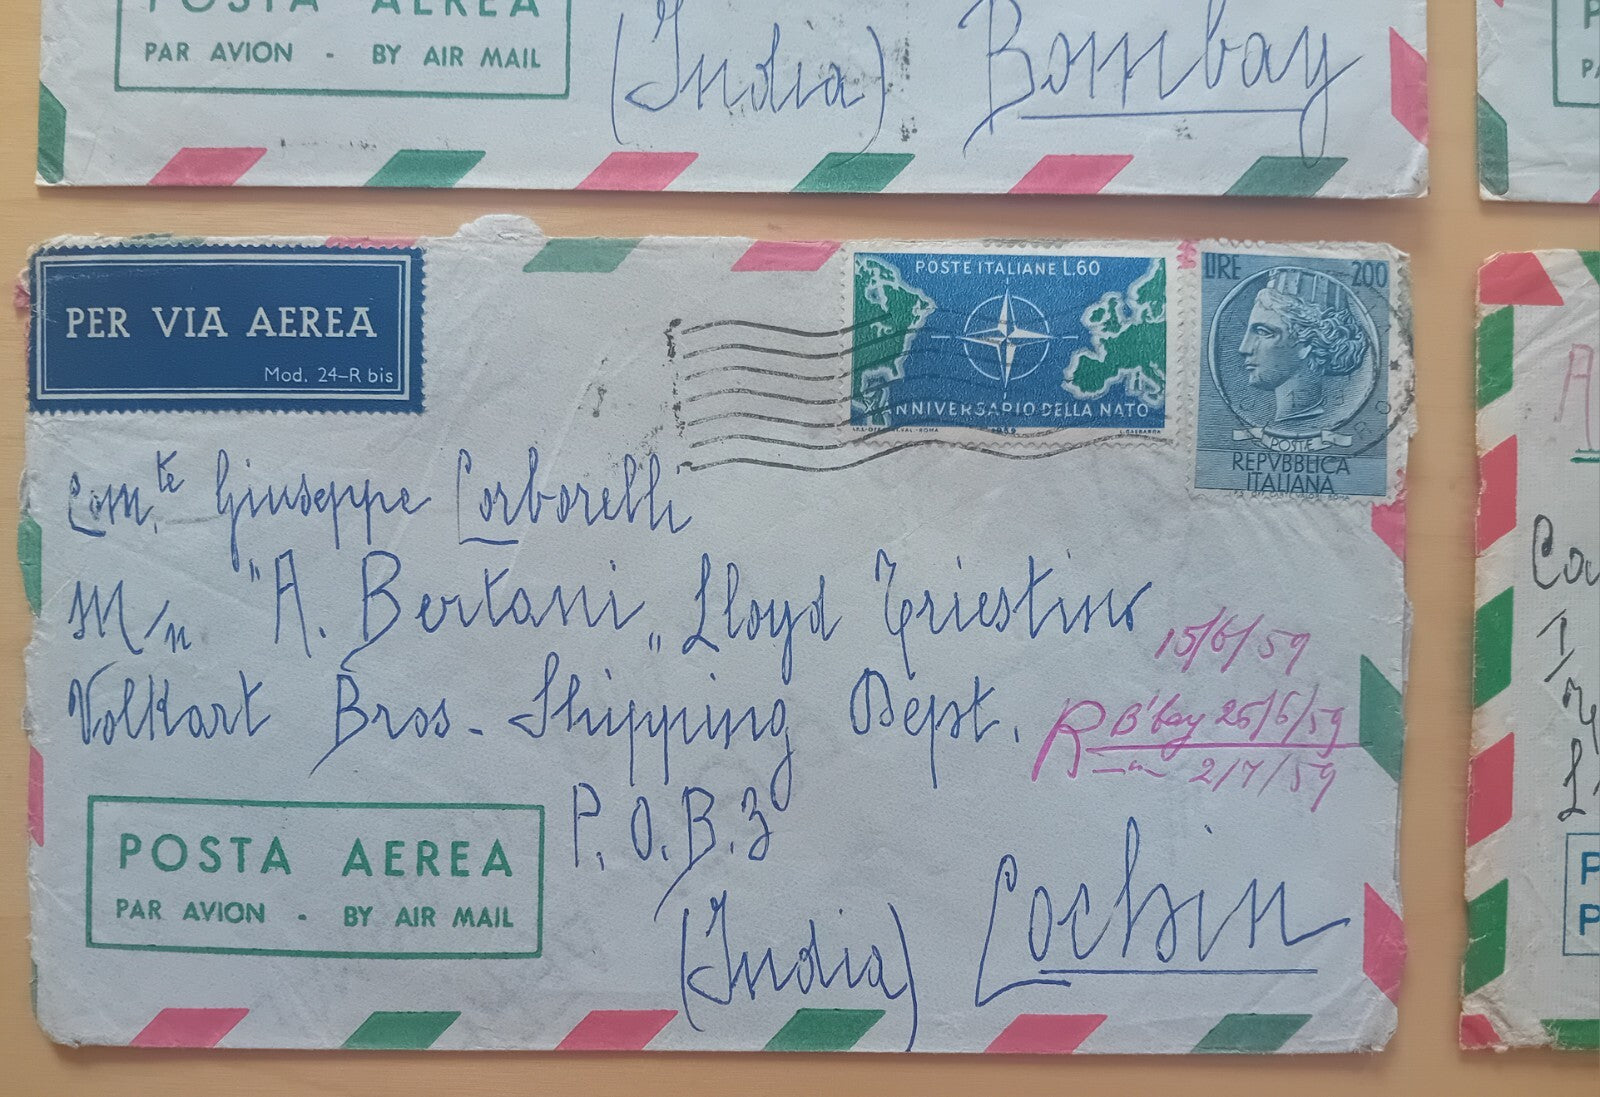 POSTA AEREA
PAR AVION - BY AIR MAIL
(India) Bombay
PER VIA AEREA
Mod. 24-R bis
POSTE ITALIANE L.60
X ANNIVERSARIO DELLA NATO
1959
LIRE 200
POSTE
REPVBBLICA
ITALIANA
Com.te Giuseppe Corborelli
M/n "A. Bertani" Lloyd Triestino
15/6/59
Volkart Bros. - Shipping Dept.
R B'bay 25/6/59
2/7/59
P.O.B. 3
POSTA AEREA
PAR AVION - BY AIR MAIL
(India) Cochin